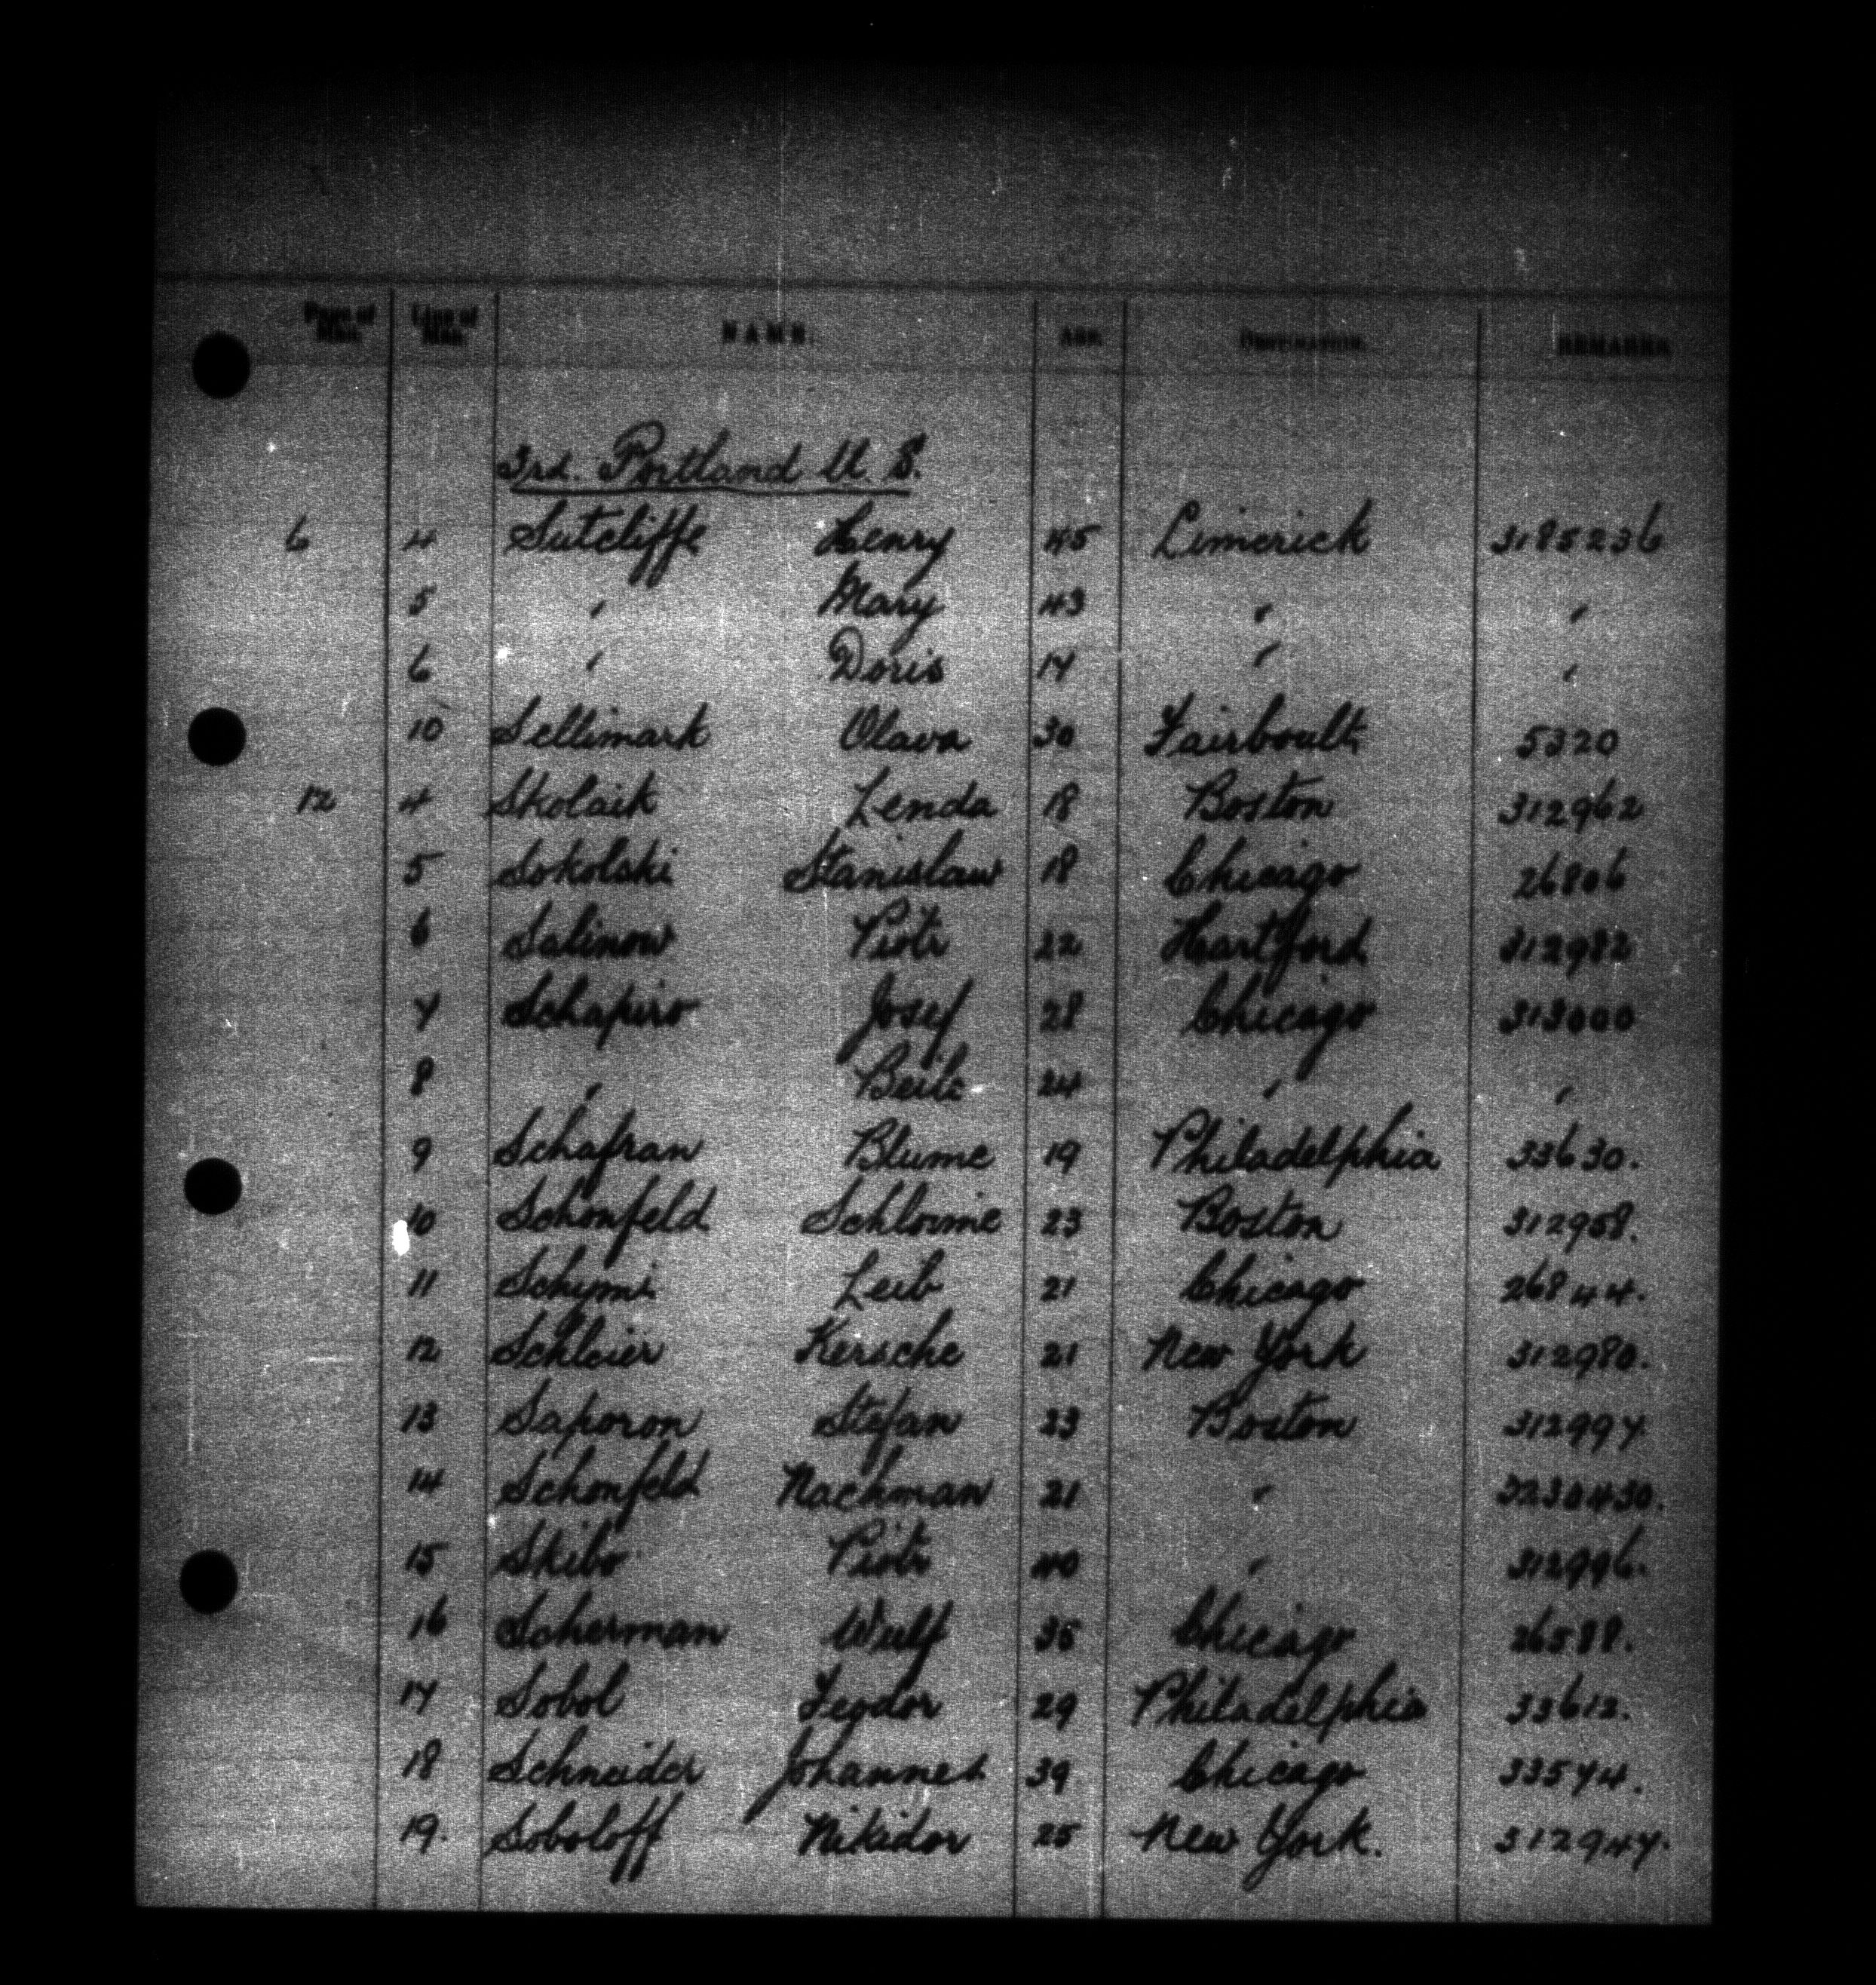 Page of Man. Line of Man. NAME. AGE. DESTINATION. REMARKS
3rd. Portland U. S.
6 4 Sutcliffe Henry 45 Limerick 3185236
5 " Mary 43 " "
6 " Doris 14 " "
10 Sellimark Olava 30 Fairboult 5320
12 4 Skolaik Zenda 18 Boston 312962
5 Sokolski Stanislaw 18 Chicago 26806
6 Salinow Piotr 22 Hartford 312982
7 Schapiro Josef 28 Chicago 313000
8 " Beila 24 " "
9 Schafran Blume 19 Philadelphia 33630.
10 Schonfeld Schloime 23 Boston 312958.
11 Schymi Leib 21 Chicago 26844.
12 Schleier Kersche 21 New York 312980.
13 Saporon Stefan 23 Boston 312997
14 Schonfeld Nachman 21 " 3230430.
15 Skibo Piotr 40 " 312996.
16 Scherman Wulf 35 Chicago 26588.
17 Sobol Feydor 29 Philadelphia 33612.
18 Schneider Johannes 39 Chicago 33574.
19. Soboloff Nikidor 25 New York. 312947.